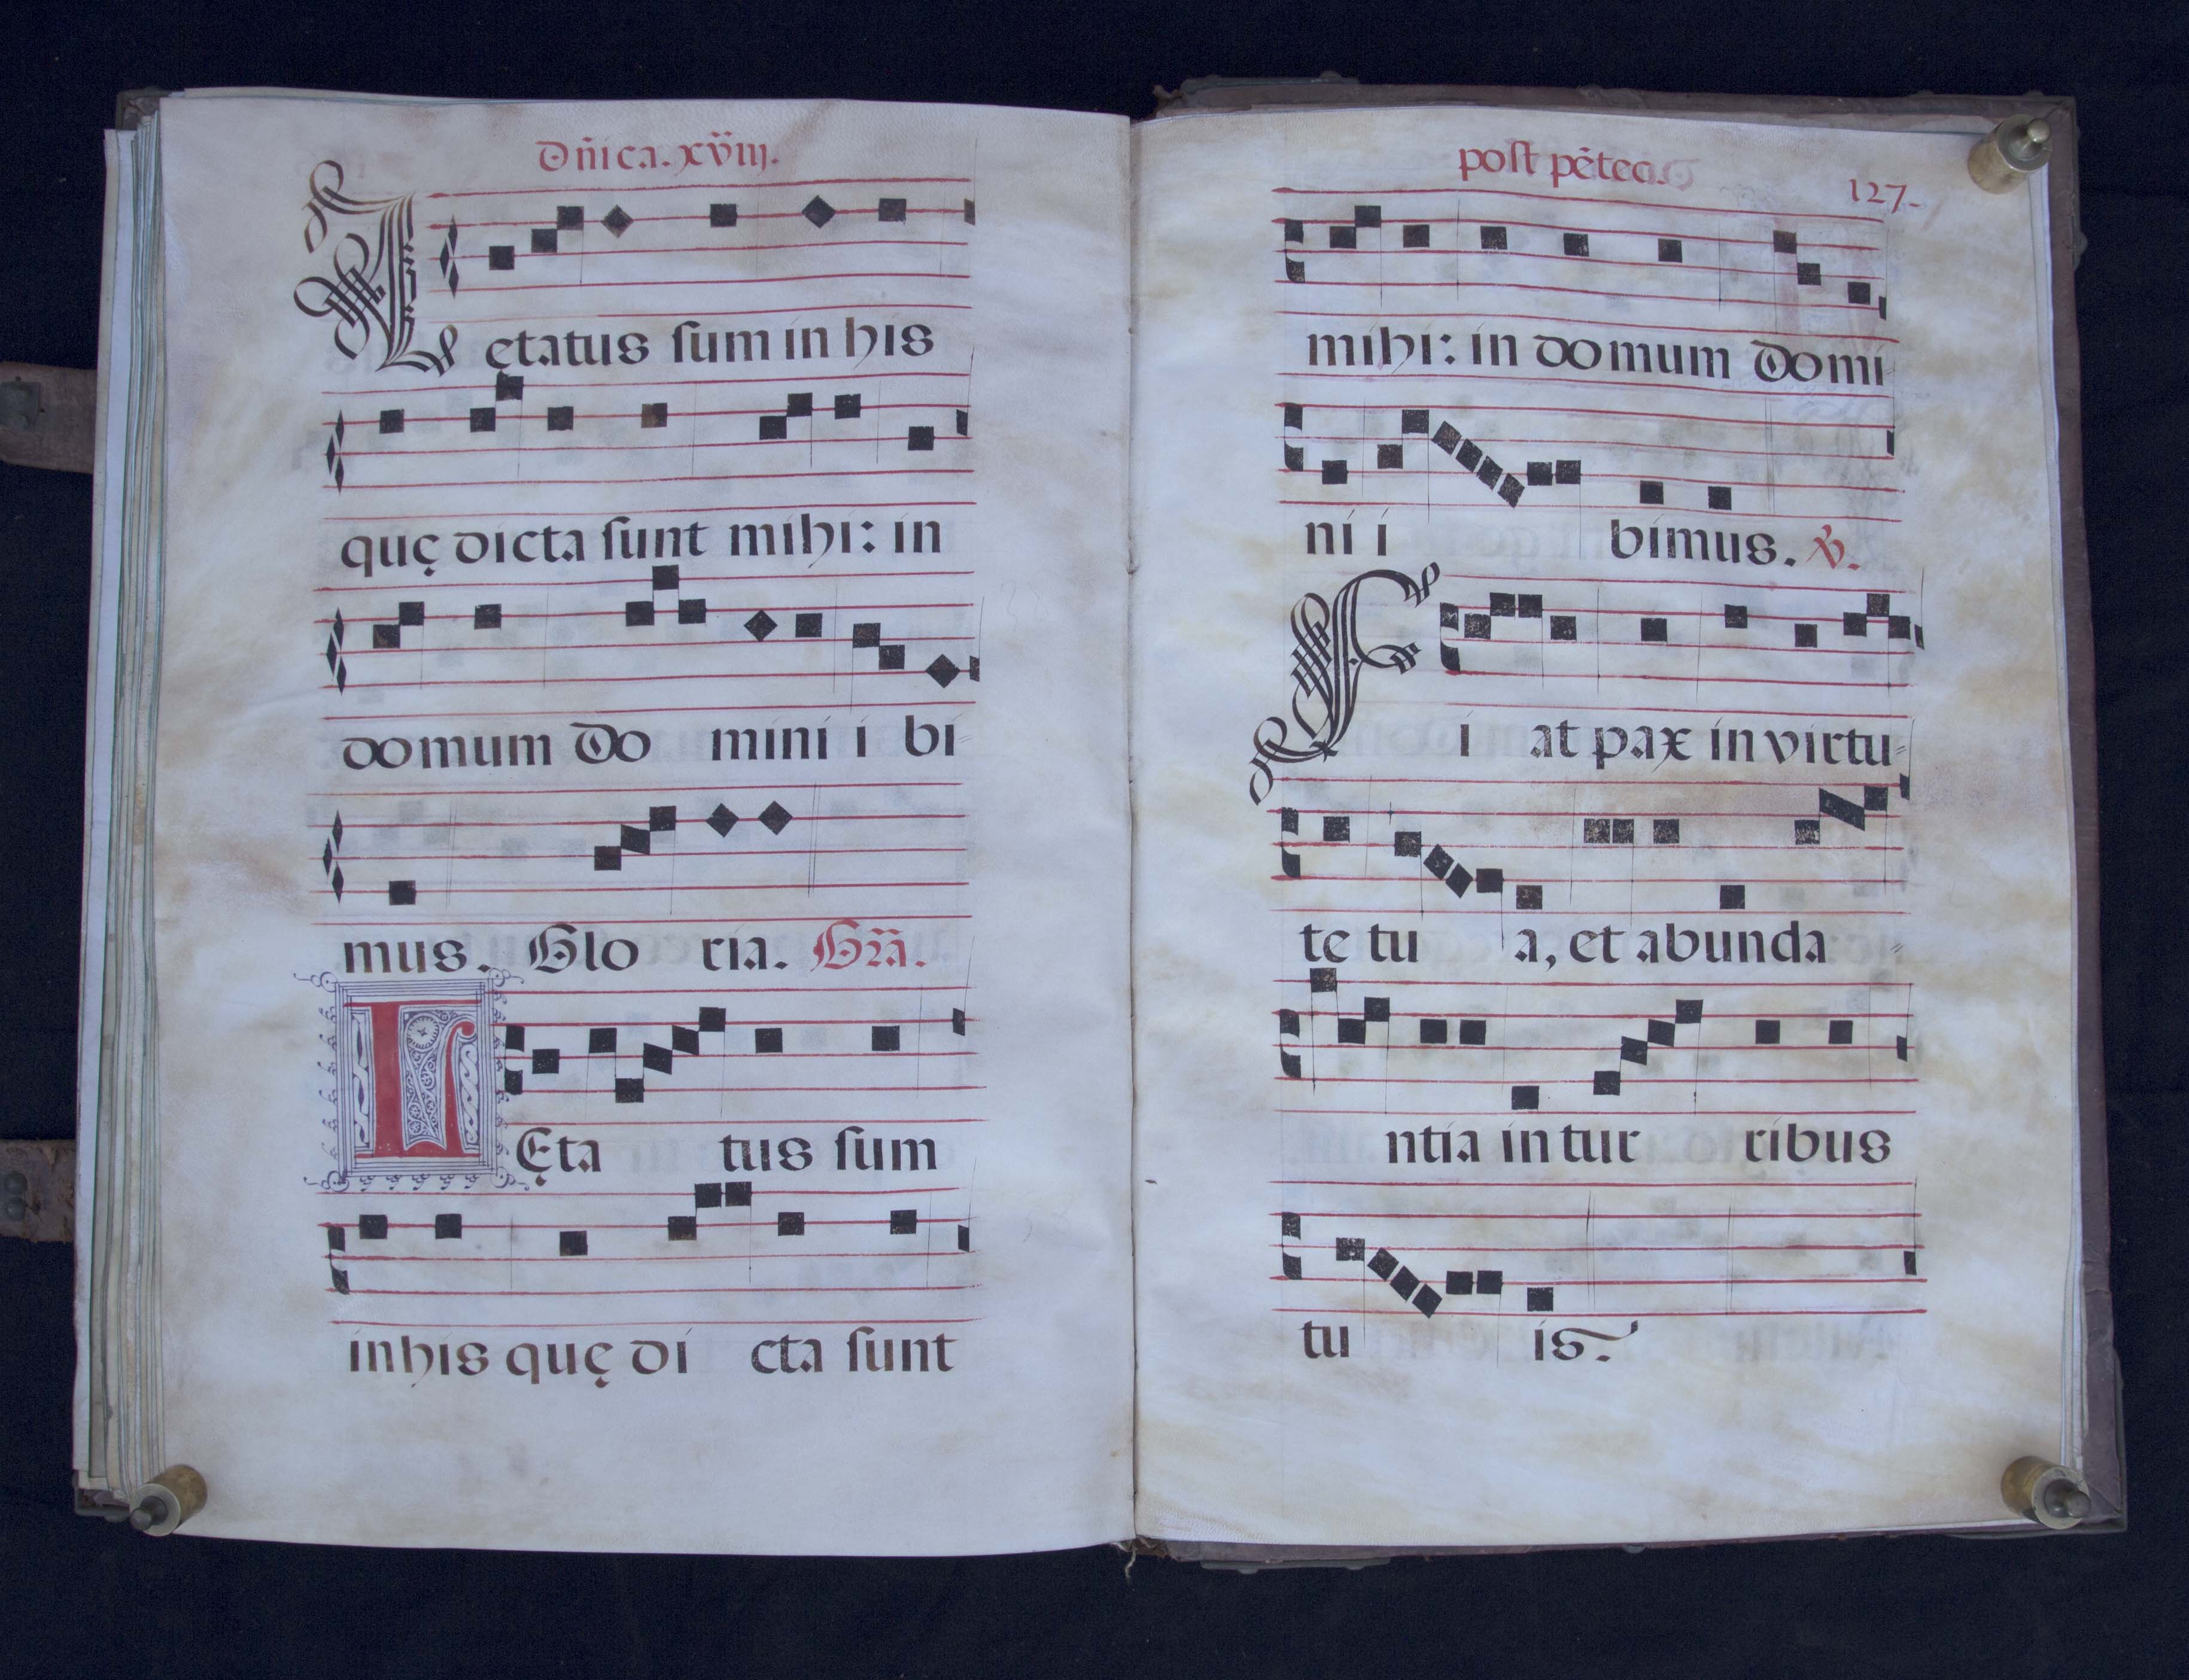 Dñica. xviij.
Lętatus sum in his
quę dicta sunt mihi: in
domum Do mini i bi
mus. Glo ria. Gr̃a.
LĘta tus sum
in his quę di cta sunt
post pẽtec.
127.
mihi: in domum Domi
ni i bimus. ℣.
Fi at pax in virtu-
te tu a, et abunda-
ntia in tur ribus
tu is.